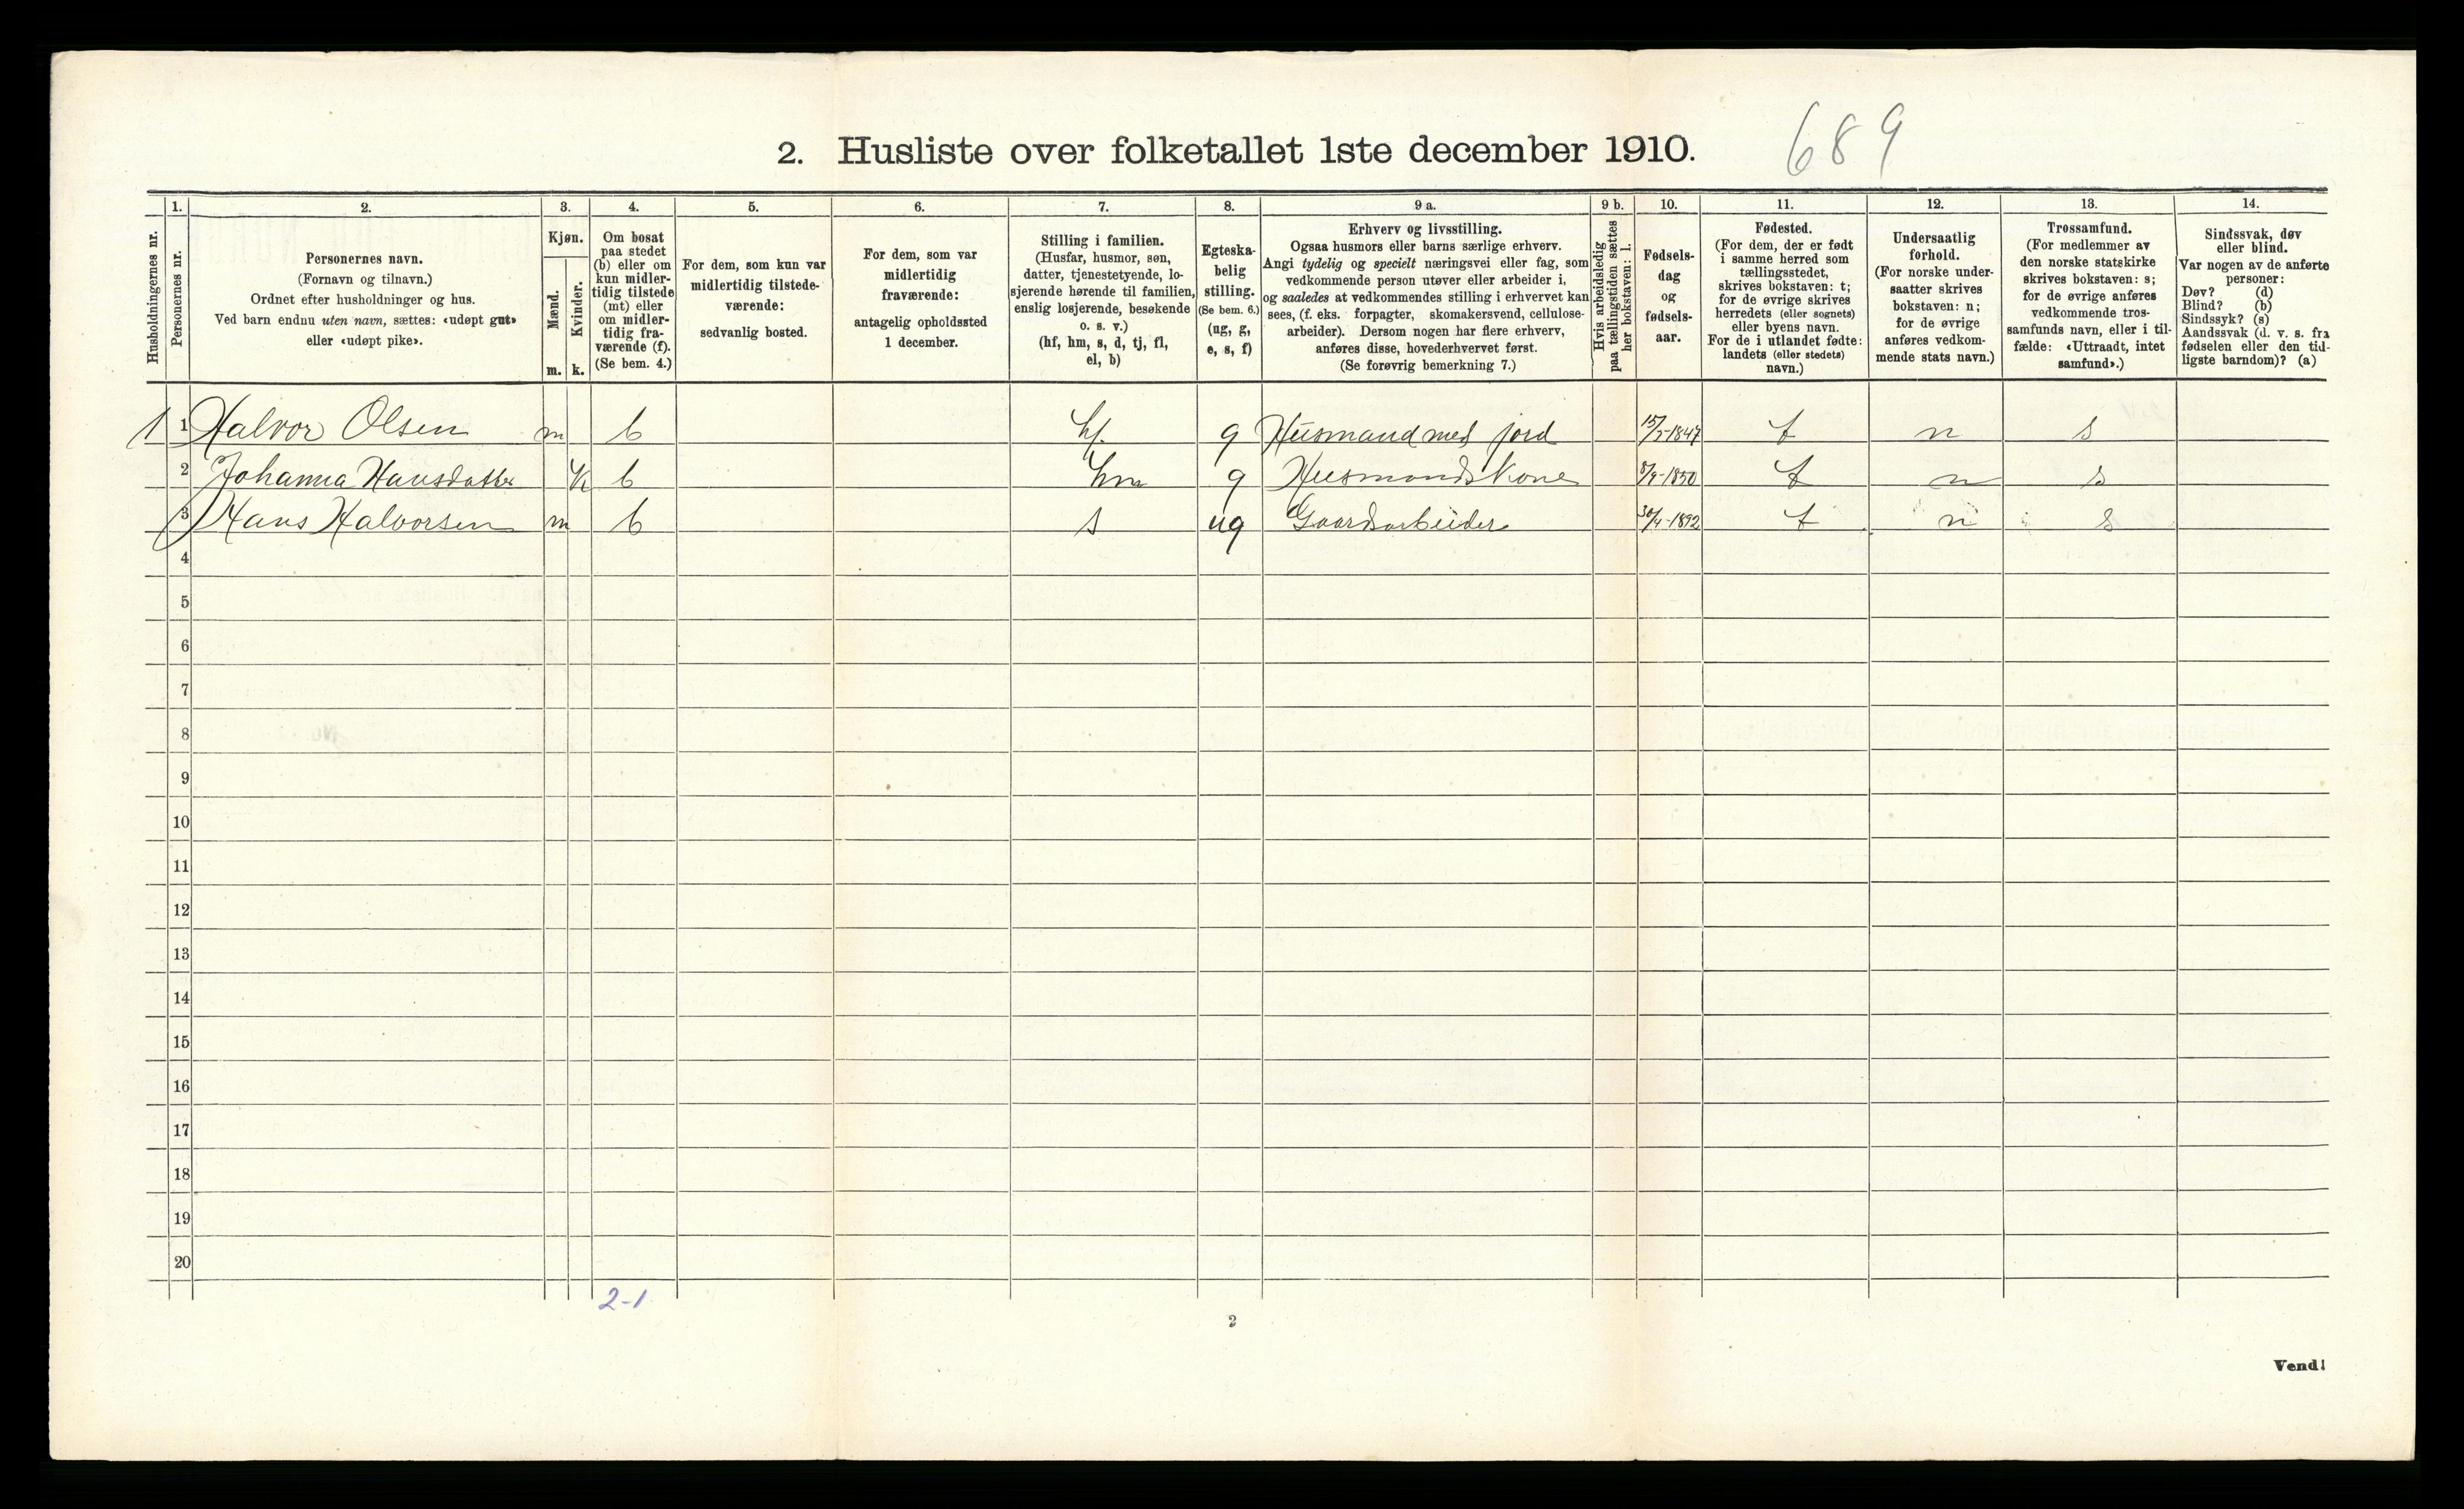 2. Husliste over folketallet 1ste december 1910. 689
Husholdningernes nr.
1. Personernes nr.
2. Personernes navn.
(Fornavn og tilnavn.)
Ordnet efter husholdninger og hus.
Ved barn endnu uten navn, sættes: «udøpt gut»
eller «udøpt pike».
3. Kjøn.
Mænd. m.
Kvinder. k.
4. Om bosat
paa stedet
(b) eller om
kun midler-
tidig tilstede
(mt) eller
om midler-
tidig fra-
værende (f).
(Se bem. 4.)
5. For dem, som kun var
midlertidig tilstede-
værende:
sedvanlig bosted.
6. For dem, som var
midlertidig
fraværende:
antagelig opholdssted
1 december.
7. Stilling i familien.
(Husfar, husmor, søn,
datter, tjenestetyende, lo-
sjerende hørende til familien,
enslig losjerende, besøkende
o. s. v.)
(hf, hm, s, d, tj, fl,
el, b)
8. Egteska-
belig
stilling.
(Se bem. 6.)
(ug, g,
e, s, f)
9 a. Erhverv og livsstilling.
Ogsaa husmors eller barns særlige erhverv.
Angi tydelig og specielt næringsvei eller fag, som
vedkommende person utøver eller arbeider i,
og saaledes at vedkommendes stilling i erhvervet kan
sees, (f. eks. forpagter, skomakersvend, cellulose-
arbeider). Dersom nogen har flere erhverv,
anføres disse, hovederhvervet først.
(Se forøvrig bemerkning 7.)
9 b. Hvis arbeidsledig
paa tællingstiden sættes
her bokstaven: l.
10. Fødsels-
dag
og
fødsels-
aar.
11. Fødested.
(For dem, der er født
i samme herred som
tællingsstedet,
skrives bokstaven: t;
for de øvrige skrives
herredets (eller sognets)
eller byens navn.
For de i utlandet fødte:
landets (eller stedets)
navn.)
12. Undersaatlig
forhold.
(For norske under-
saatter skrives
bokstaven: n;
for de øvrige
anføres vedkom-
mende stats navn.)
13. Trossamfund.
(For medlemmer av
den norske statskirke
skrives bokstaven: s;
for de øvrige anføres
vedkommende tros-
samfunds navn, eller i til-
fælde: «Uttraadt, intet
samfund».)
14. Sindssvak, døv
eller blind.
Var nogen av de anførte
personer:
Døv? (d)
Blind? (b)
Sindssyk? (s)
Aandssvak (d. v. s. fra
fødselen eller den tid-
ligste barndom)? (a)
1 1 Halvor Olsen m b hf. g Husmand med jord 1847 t n s
2 Johanna Hansdatter k b hm g Husmandskone 8/9-1850 t n s
3 Hans Halvorsen m b s ug Gaardsarbeider 30/4-1892 t n s
4
5
6
7
8
9
10
11
12
13
14
15
16
17
18
19
20
2-1
2
Vend!